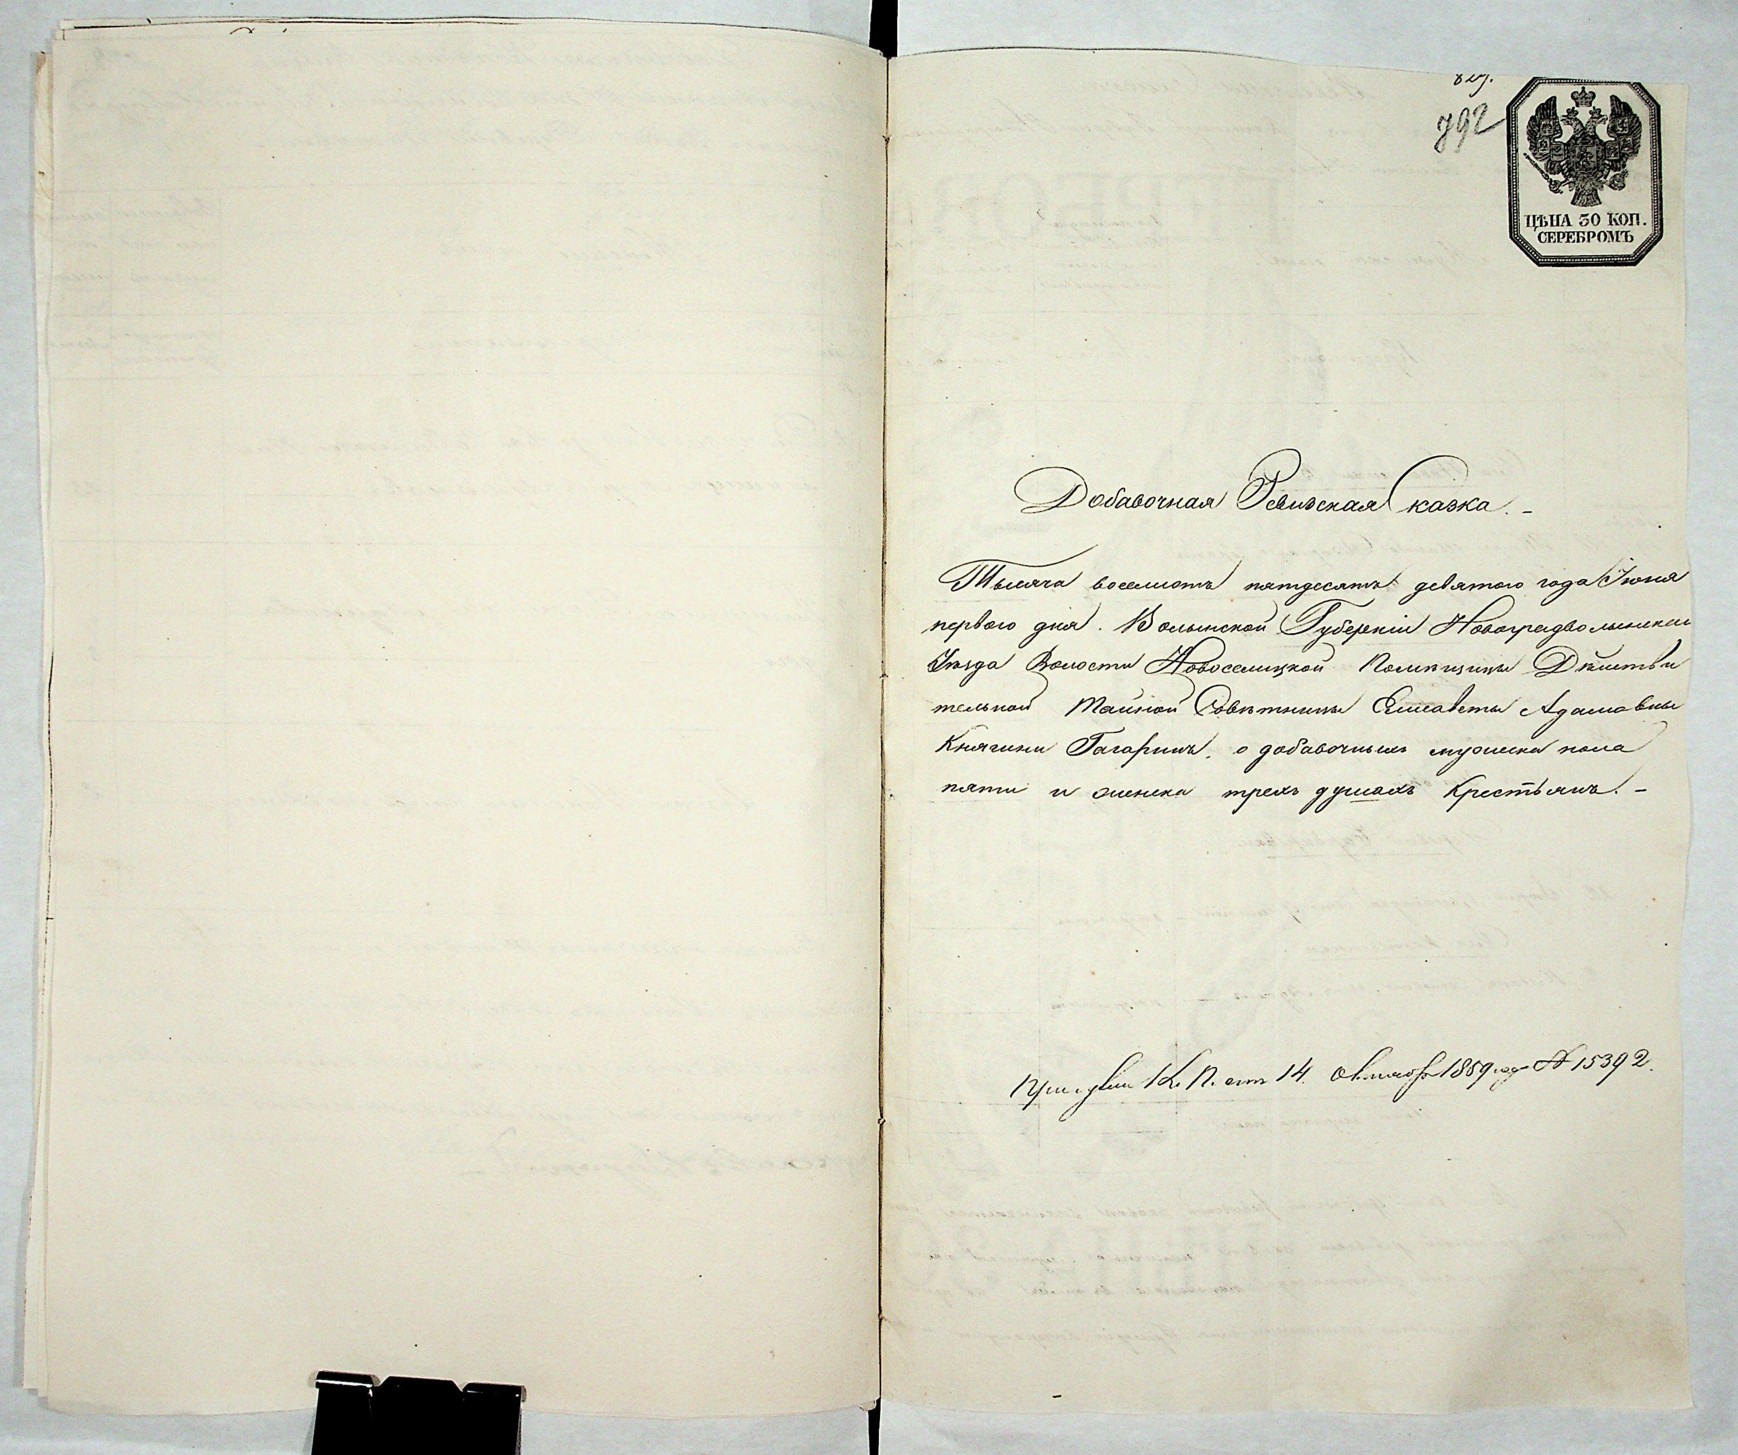 829.
792
ЦѢНА 30 КОП.
СЕРЕБРОМЪ
Добавочная Ревизская Сказка. -
Тысяча восемьсотъ пятдесятъ девятого года Іюня
первого дня. Волынской Губерніи Новоградволынскаго
Уѣзда Волости Новоселицкой Помѣщицы Дѣйстви
тельной Тайной Совѣтницы Елисаветы Адамовны
Княгини Гагаринъ, о добавочныхъ мужеска пола
пяти и женска трехъ душахъ Крестьянъ. -
При К. П. отъ 14. октября 1859 года № 15392.